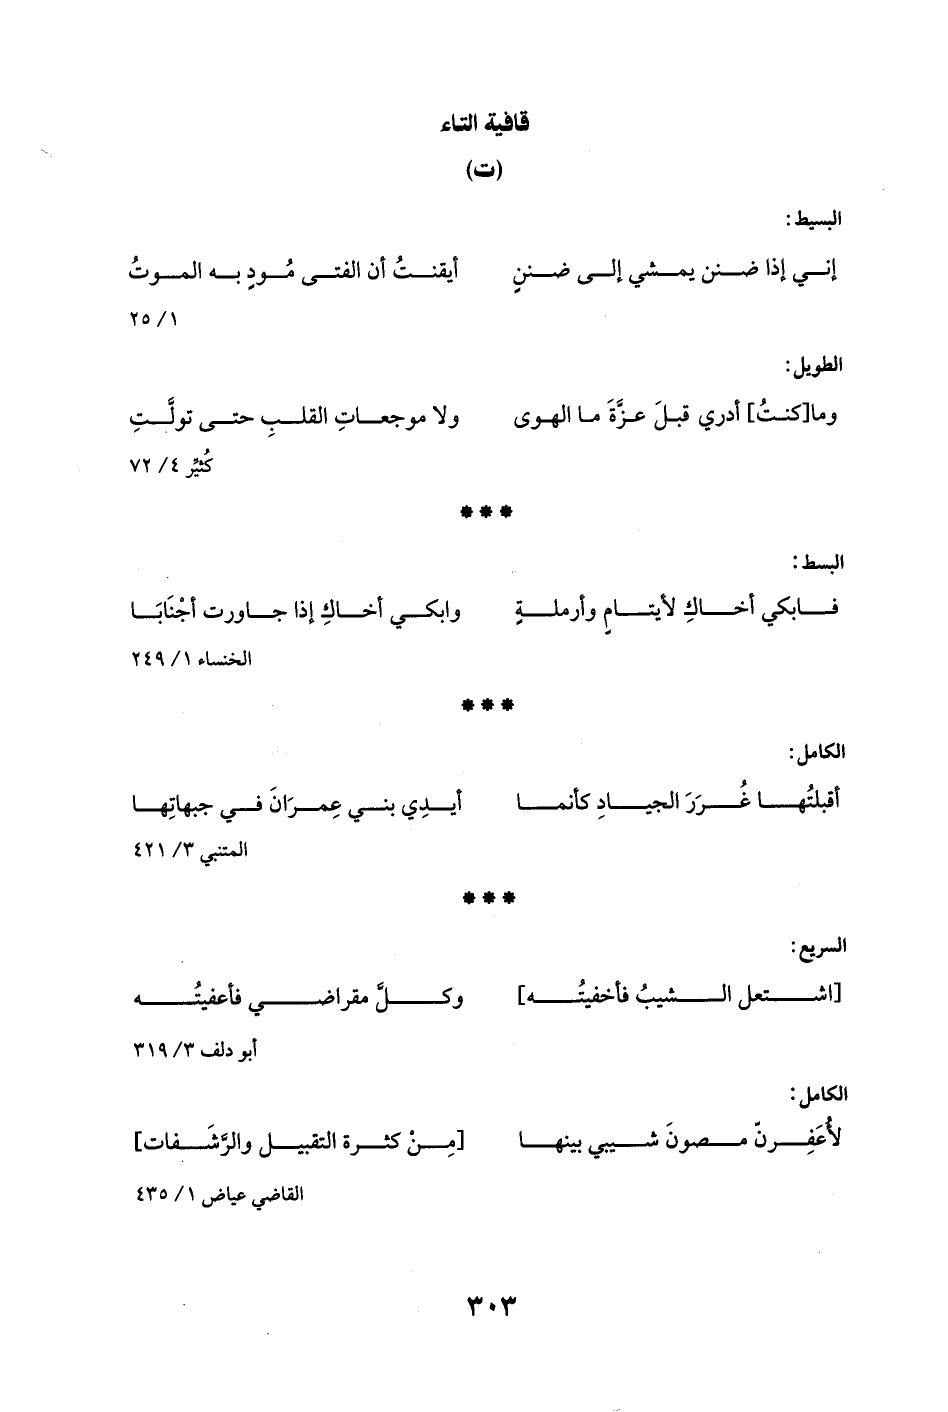 قافية التاء
(ت)
البسيط:
إنــي إذا ضنن يمشي إلى ضننٍ أيقنتُ أن الفتى مُودٍ به الموتُ
٢٥ /١
الطويل:
وما[كنتُ] أدري قبلَ عزَّةَ ما الهوى ولا موجعاتِ القلبِ حتى تولَّتِ
كُثيِّر ٤/ ٧٢
***
البسط:
فابكي أخاكِ لأيتامٍ وأرملةٍ وابكي أخاكِ إذا جاورت أجْنَابَا
الخنساء ١/ ٢٤٩
***
الكامل:
أقبلتُها غُرَرَ الجيادِ كأنما أيدِي بني عِمرَانَ في جبهاتِها
المتنبي ٣/ ٤٢١
***
السريع:
[اشتعل الشيبُ فأخفيتُه] وكلَّ مقراضي فأعفيتُه
أبو دلف ٣/ ٣١٩
الكامل:
لأُعَفِرنّ مصونَ شيبي بينها [مِنْ كثرة التقبيل والرَّشَفات]
القاضي عياض ١/ ٤٣٥
٣٠٣